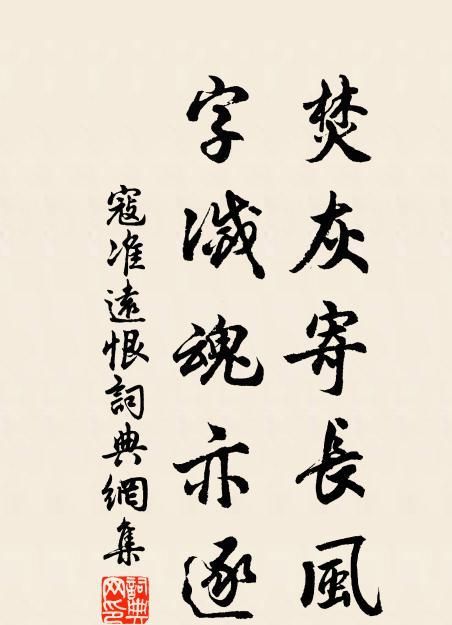 焚灰寄長風
字滅魂亦逐
寇准遠恨詞典網集
詞典網印